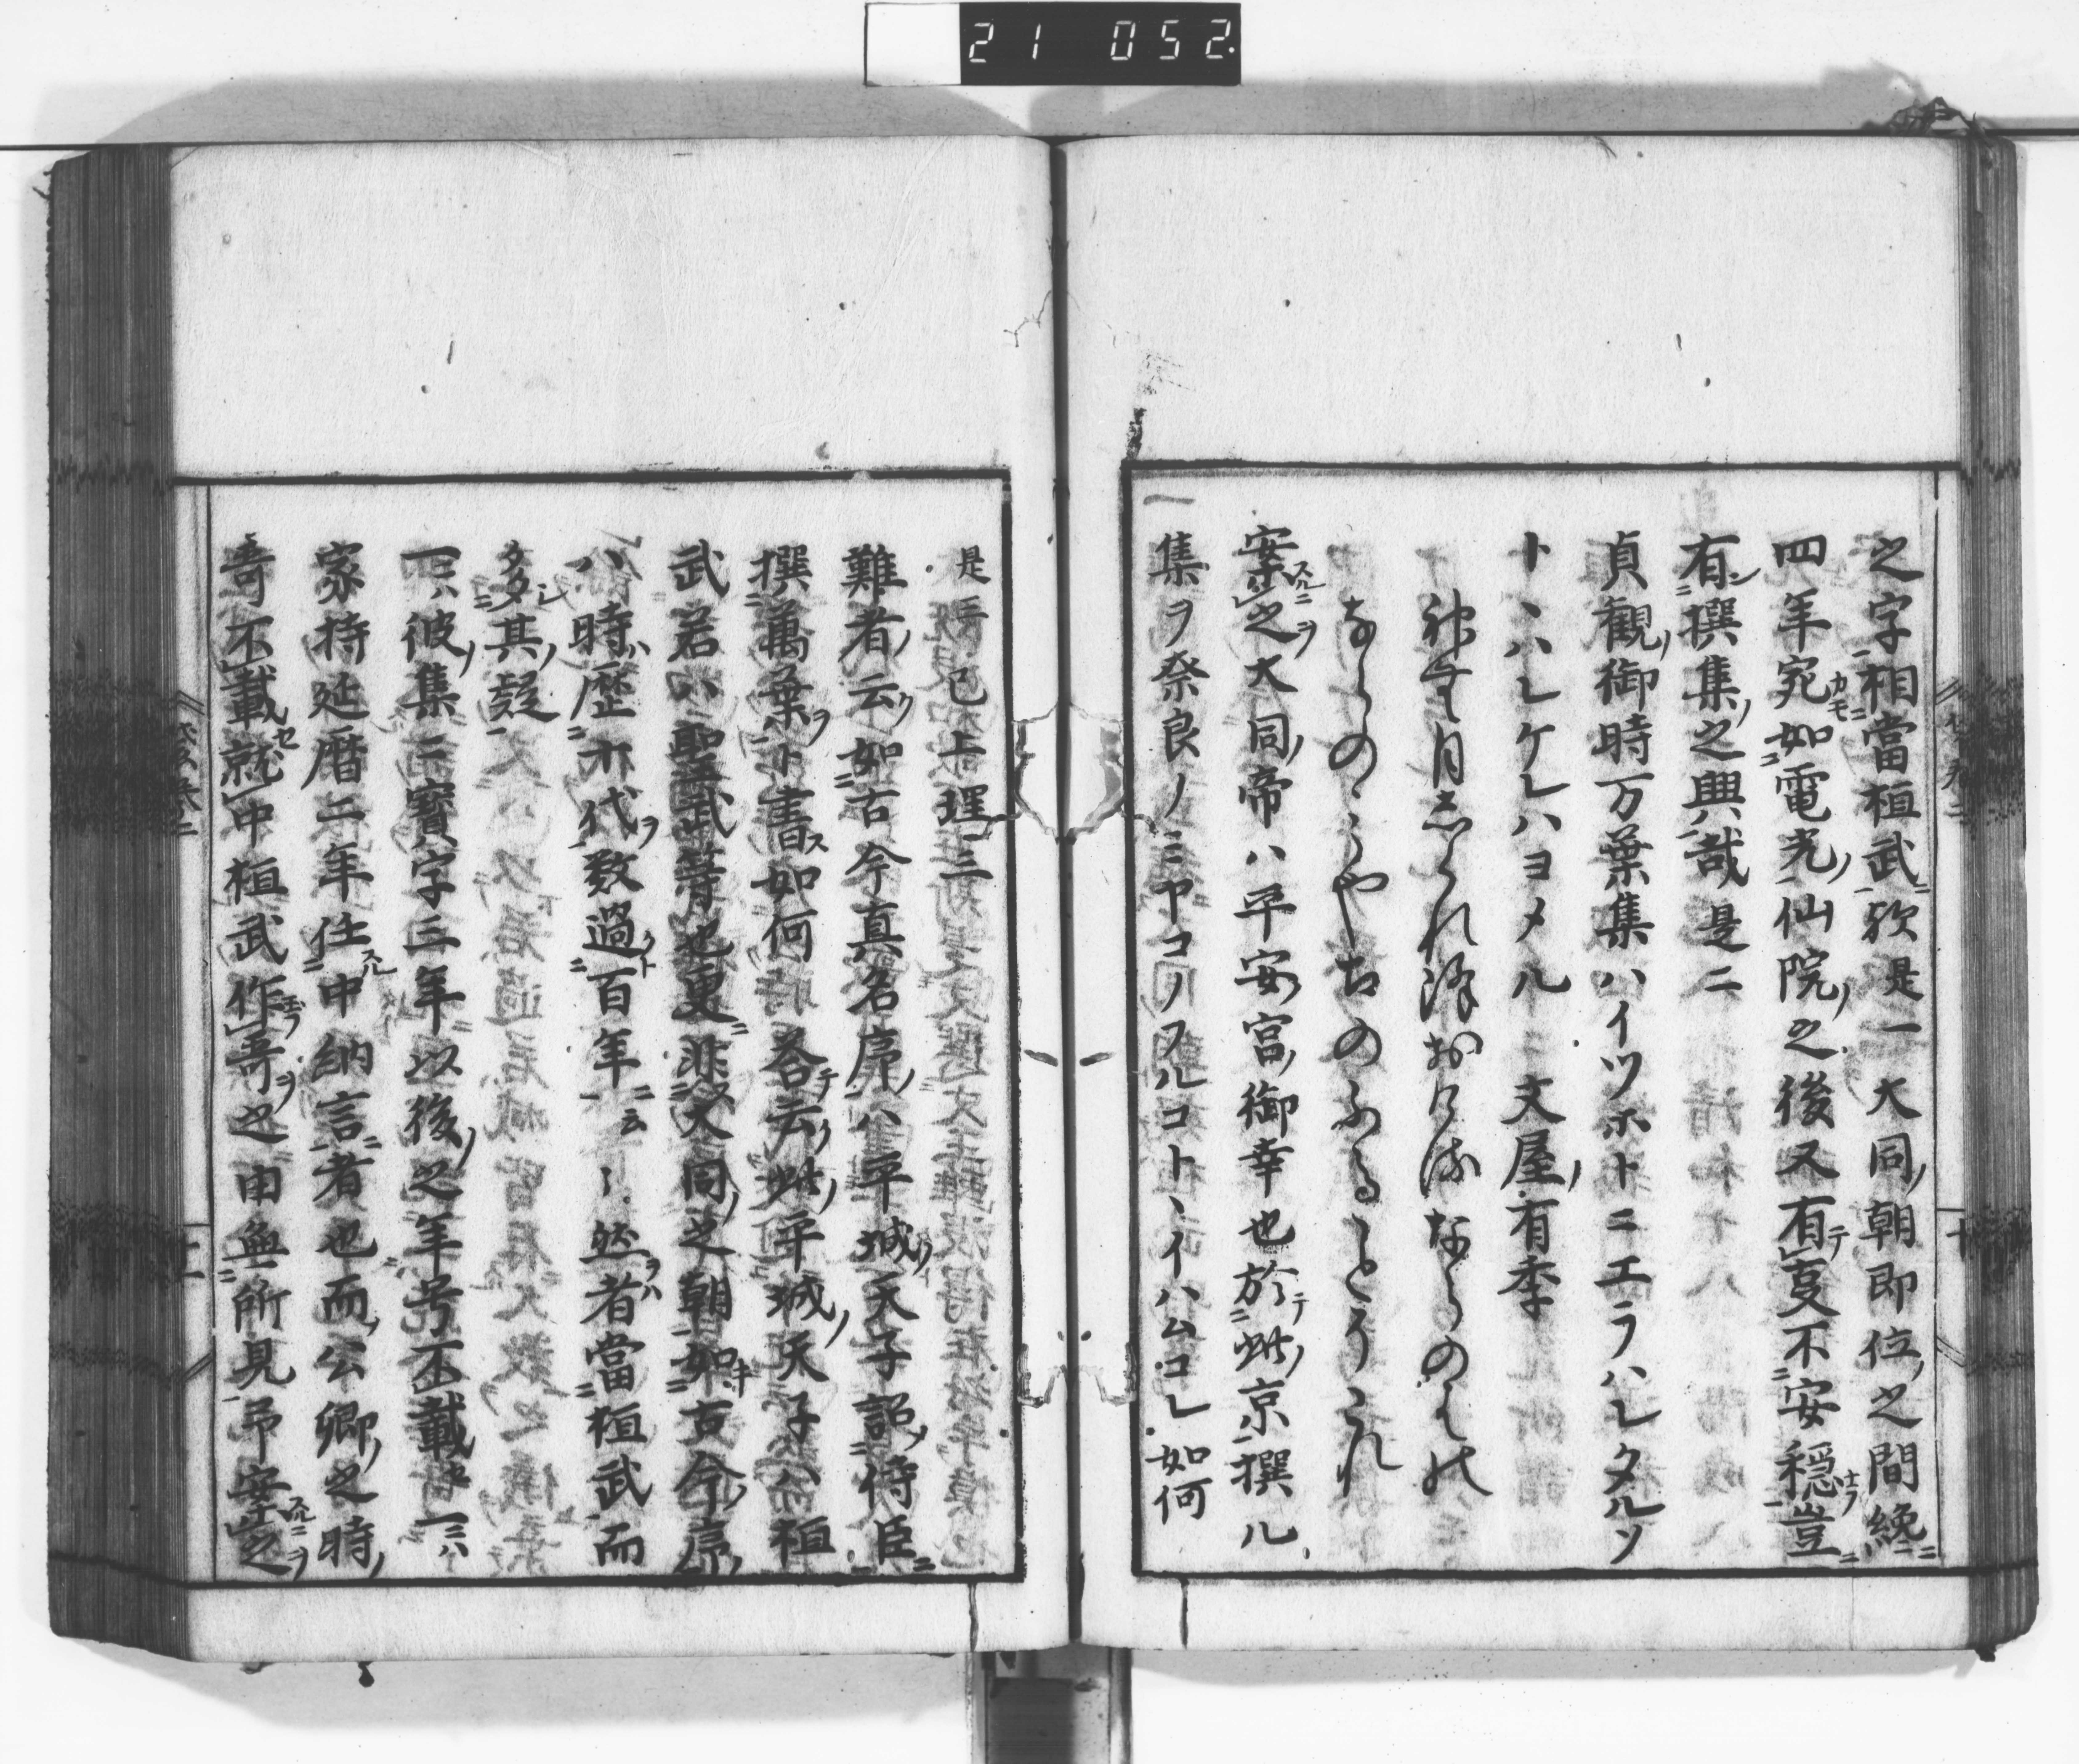 21 052
之字相當桓武歟是一大同朝即位之間纔
四年宛如電光仙院之後又有叓不安穩豈
有撰集之興哉是二
貞観御時万葉集ハイツホトニエラハレタルソ
トヽハレケレハヨメル 文屋有季
神な月しくれ降おけるならのはの
ならのみやこのふることそこれ
案之大同帝ハ平安宮御幸也於此京撰ル
集ヲ奈良ノミヤコノフルコトヽイハムコレ如何
是三已上理三
難者云如古今真名序ハ平城天子詔侍臣
撰萬葉ト書如何 答云此平城天子ハ桓
武若ハ聖武等也更非大同之朝如古今序
ハ時歴十代数過百年云々然者當桓武而
多其疑
一ハ彼集ニ寳字三年以後之年号不載一ハ
家持延暦二年任中納言者也而公卿之時
哥不載就中桓武作哥之由無所見爭案之